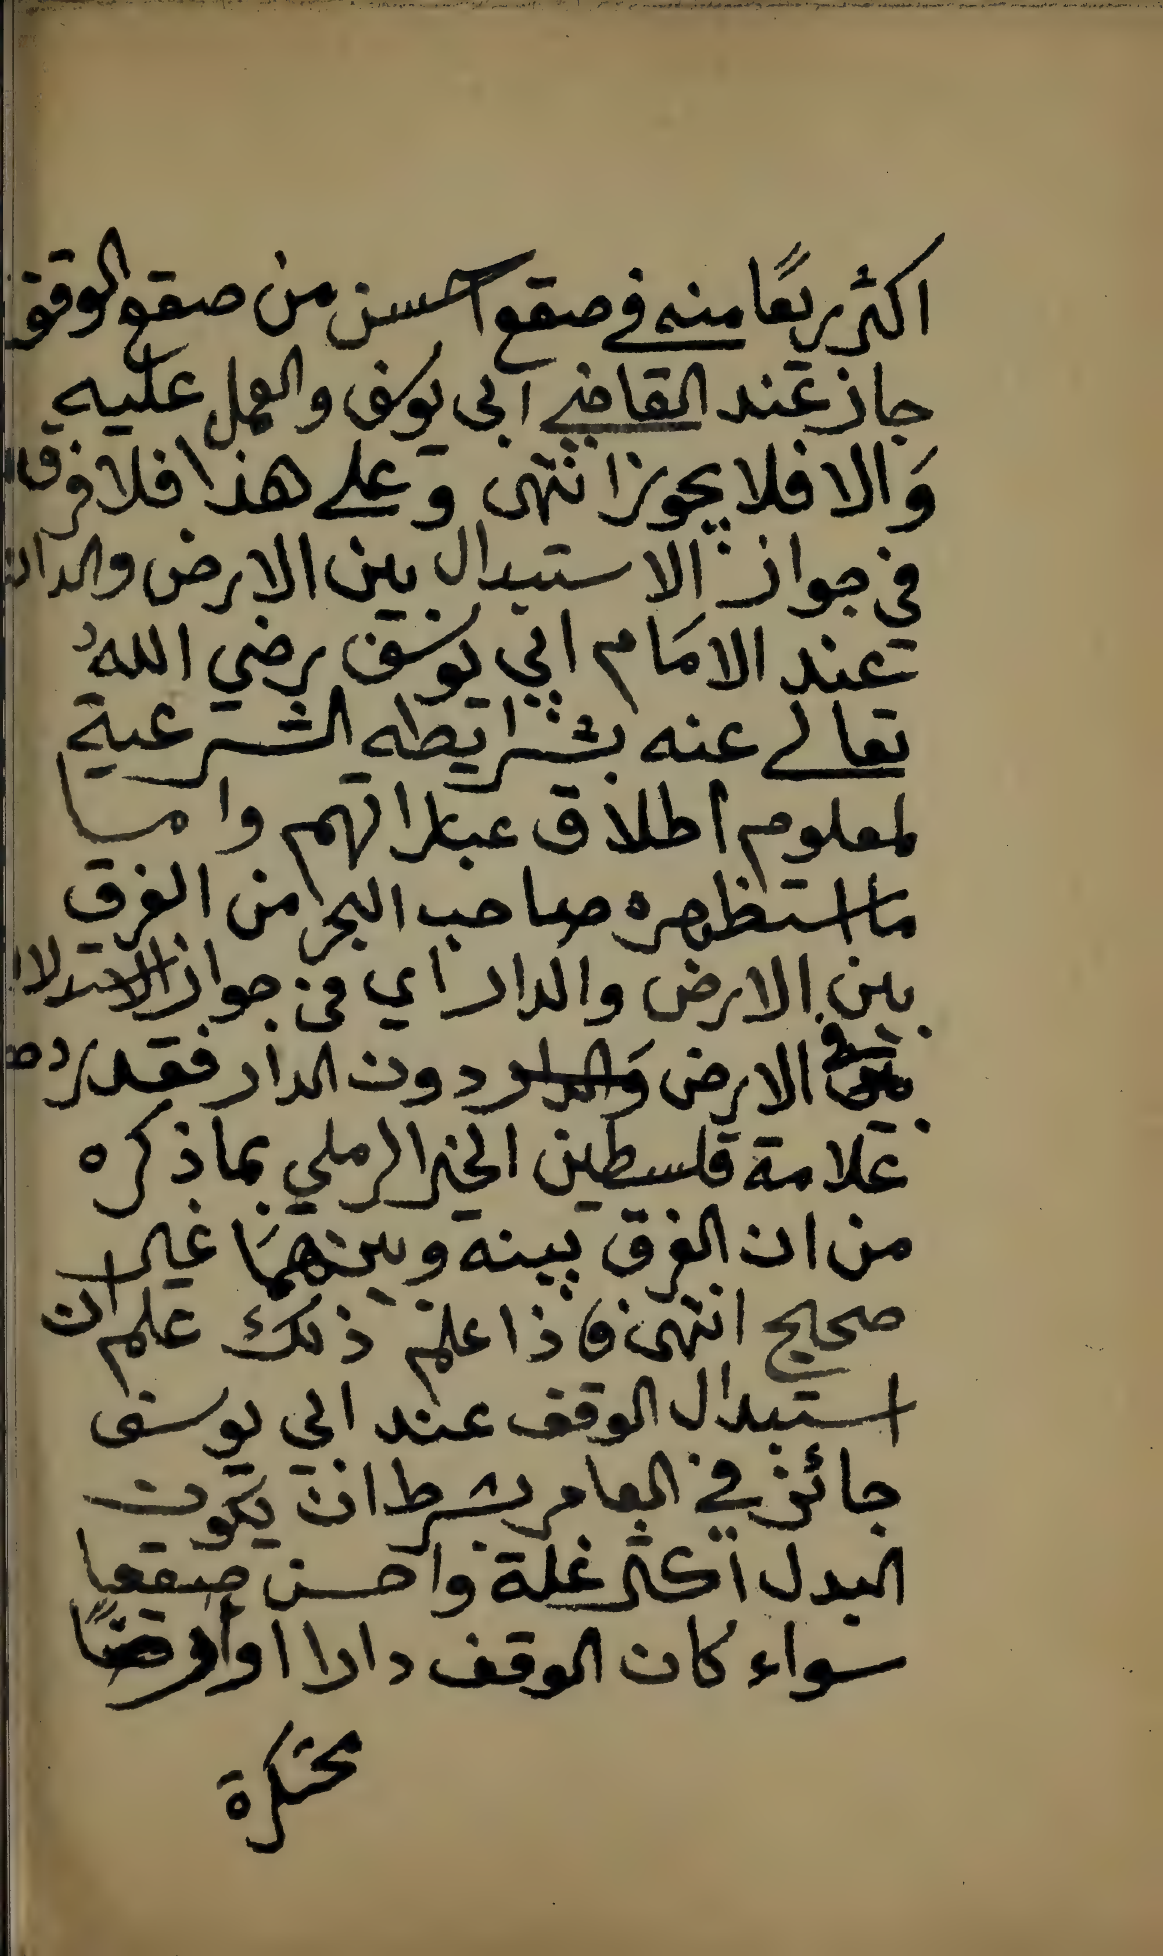 اكثر ريعًا منه في صقع احسن من صقع الوقف
جاز عند القاضي ابي يوسف والعمل عليه
وَالا فلا يجوز انتهى وعلى هذا فلا فرق
في جواز الاستبدال بين الارض والدار
عند الامَام ابي يوسف رضي اللهُ
تعالى عنه بشرايطه الشرعية
لمعلوم اطلاق عباراتهم واما
ما استظهره صاحب البحر من الفرق
بين الارض والدار اي في جواز الاستبدال
في الارض والدار دون الدار فقد رده
علامة فلسطين الخير الرملي بما ذكره
من ان الفرق بينه وبينهمَا غير
صحيح انتهى فاذا علم ذلك علم ان
استبدال الوقف عند ابي يوسف
جائز في العامر بشرط ان يكون
البدل اكثر غلة واحسن صقعا
سواء كان الوقف دارا او ارضًا
محتكرة